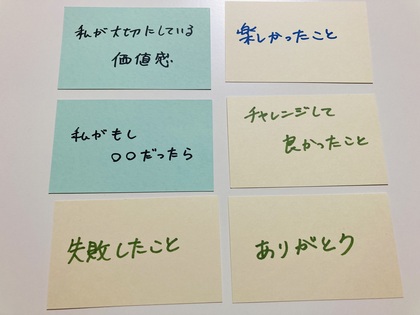 私が大切にしている
価値感
楽しかったこと
私がもし
〇〇だったら
チャレンジして
良かったこと
失敗したこと
ありがとう